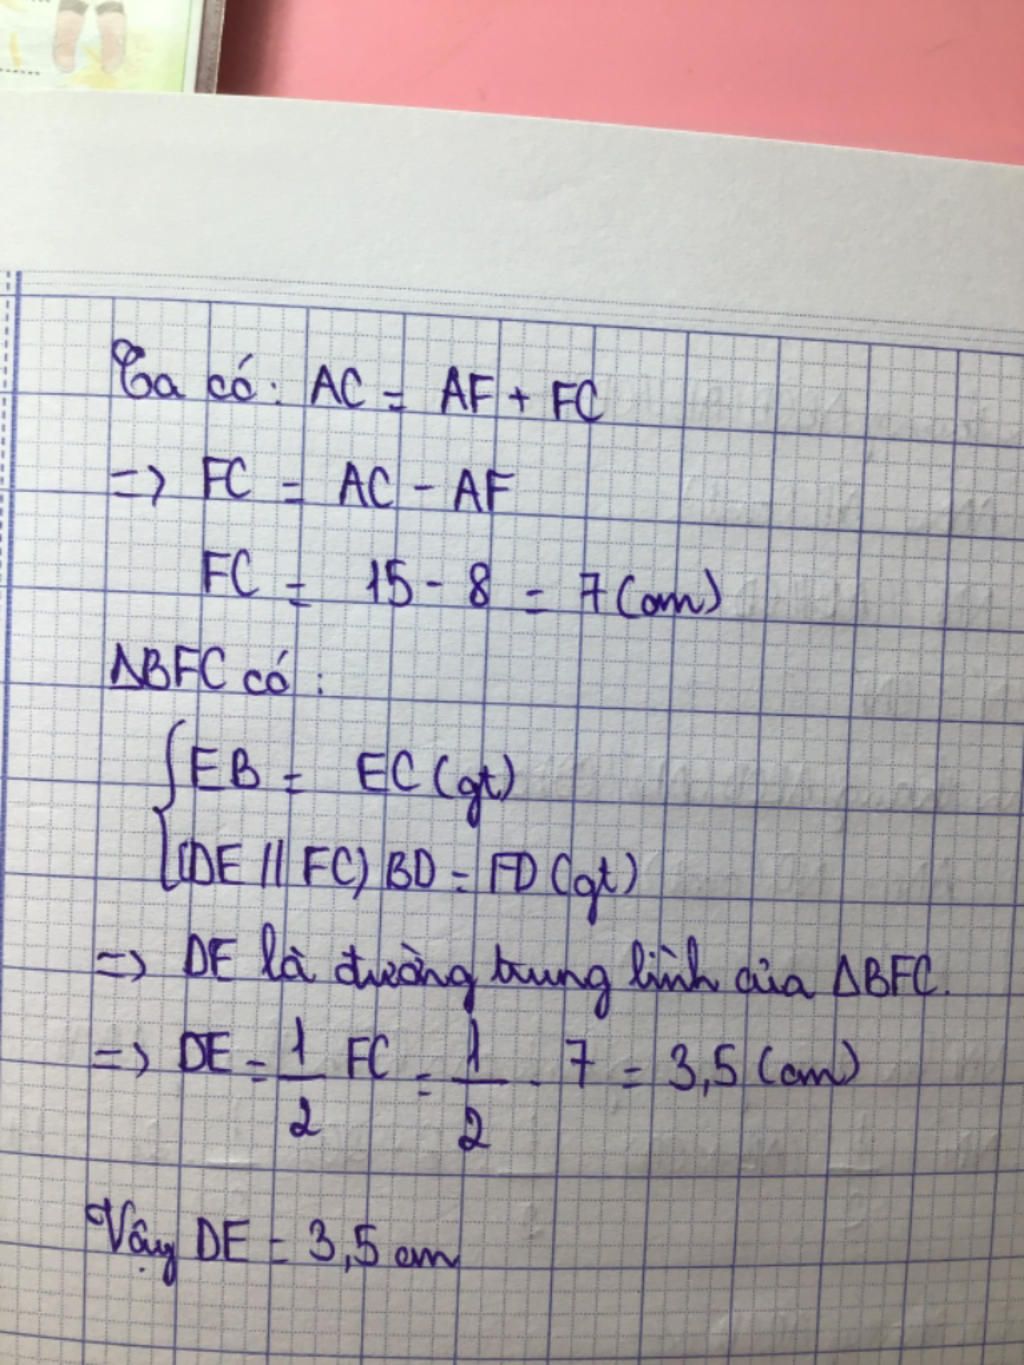 Ta có: AC = AF + FC
=> FC = AC - AF
FC = 15 - 8 = 7 (cm)
ΔBFC có:
{ EB = EC (gt)
(DE // FC) BD = FD (gt)
=> DE là đường trung bình của ΔBFC.
=> DE = 1/2 FC = 1/2 . 7 = 3,5 (cm)
Vậy DE = 3,5 cm